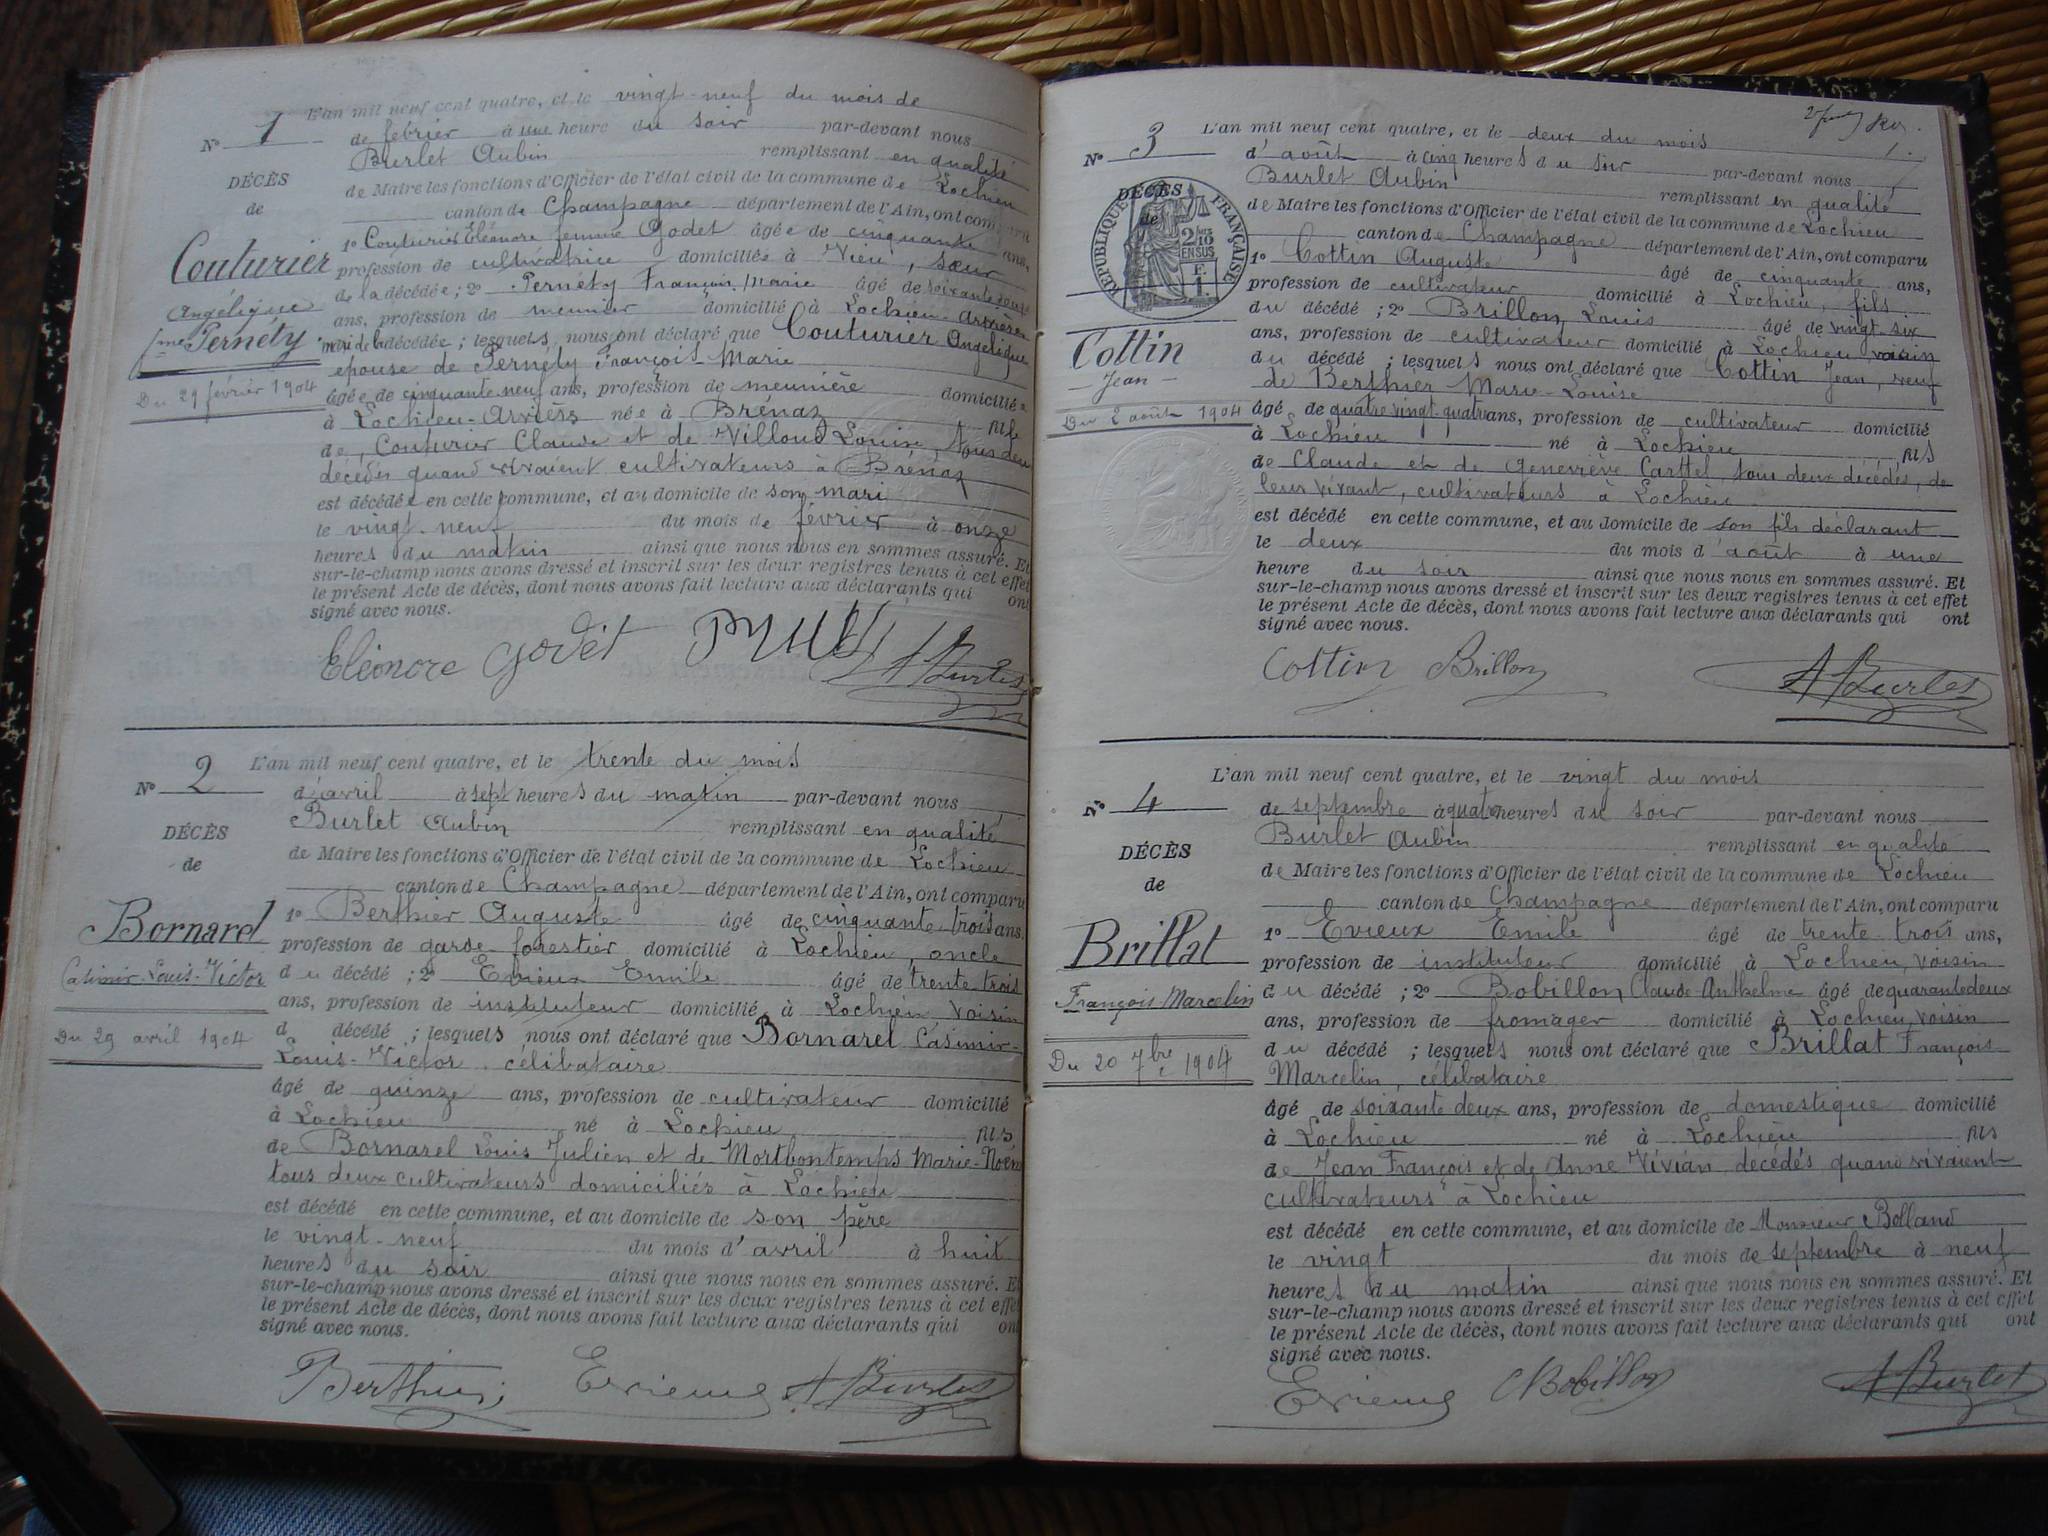 L'an mil neuf cent quatre, et le vingt-neuf du mois de
N° 1 de febrier à une heure du soir par-devant nous
Burlet Aubin remplissant en qualité
DÉCÈS
de Maire les fonctions d'Officier de l'état civil de la commune de Lochieu
de
canton de Champagne département de l'Ain, ont comparu
1° Couturier Eléonore femme Godet âgée de cinquante ans,
Couturier
profession de cultivatrice domiciliée à Vieu, sœur
de la décédée ; 2° Pernéty François Marie âgé de soixante
Angélique
ans, profession de meunier domicilié à Lochieu-Arvières
fme Pernéty
mari de la décédée ; lesquels nous ont déclaré que Couturier Angélique
épouse de Pernéty François-Marie
Du 29 février 1904
âgée de cinquante neuf ans, profession de meunière domiciliée
à Lochieu-Arvières née à Brénaz fille
de Couturier Claude et de Villoud Louise, tous deux
décédés quand vivaient cultivateurs à Brénaz
est décédée en cette commune, et au domicile de son mari
le vingt-neuf du mois de février à onze
heures du matin ainsi que nous nous en sommes assuré. Et
sur-le-champ nous avons dressé et inscrit sur les deux registres tenus à cet effet
le présent Acte de décès, dont nous avons fait lecture aux déclarants qui ont
signé avec nous.
Eléonore Godet A Burlet
L'an mil neuf cent quatre, et le trente du mois
N° 2 d'avril à sept heures du matin par-devant nous
Burlet Aubin remplissant en qualité
DÉCÈS
de Maire les fonctions d'Officier de l'état civil de la commune de Lochieu
de
canton de Champagne département de l'Ain, ont comparu
1° Berthier Auguste âgé de cinquante trois ans,
Bornarel
profession de garde-forestier domicilié à Lochieu, oncle
Casimir-Louis-Victor
du décédé ; 2° Evieux Emile âgé de trente trois
ans, profession de instituteur domicilié à Lochieu voisin
Du 29 avril 1904
d décédé ; lesquels nous ont déclaré que Bornarel Casimir-
Louis-Victor célibataire
âgé de quinze ans, profession de cultivateur domicilié
à Lochieu né à Lochieu fils
de Bornarel Louis Julien et de Mortbontemps Marie-Noémi
tous deux cultivateurs domiciliés à Lochieu
est décédé en cette commune, et au domicile de son père
le vingt-neuf du mois d'avril à huit
heures du soir ainsi que nous nous en sommes assuré. Et
sur-le-champ nous avons dressé et inscrit sur les deux registres tenus à cet effet
le présent Acte de décès, dont nous avons fait lecture aux déclarants qui ont
signé avec nous.
Berthier Evieux A Burlet
L'an mil neuf cent quatre, et le deux du mois
N° 3 d'août à cinq heures du soir par-devant nous
Burlet Aubin remplissant en qualité
DÉCÈS
de
RÉPUBLIQUE FRANÇAISE
2/10 EN SUS
F. 1.
de Maire les fonctions d'Officier de l'état civil de la commune de Lochieu
canton de Champagne département de l'Ain, ont comparu
1° Cottin Auguste âgé de cinquante ans,
profession de cultivateur domicilié à Lochieu, fils
du décédé ; 2° Brillon Louis âgé de vingt-six
ans, profession de cultivateur domicilié à Lochieu voisin
Cottin
du décédé ; lesquels nous ont déclaré que Cottin Jean, veuf
Jean
de Berthier Marie-Louise
Du 2 août 1904
âgé de quatre vingt-quatre ans, profession de cultivateur domicilié
à Lochieu né à Lochieu fils
de Claude et de Geneviève Carttel tous deux décédés, de
leur vivant, cultivateurs à Lochieu
est décédé en cette commune, et au domicile de son fils déclarant
le deux du mois d'août à une
heure du soir ainsi que nous nous en sommes assuré. Et
sur-le-champ nous avons dressé et inscrit sur les deux registres tenus à cet effet
le présent Acte de décès, dont nous avons fait lecture aux déclarants qui ont
signé avec nous.
Cottin Brillon A Burlet
L'an mil neuf cent quatre, et le vingt du mois
N° 4 de septembre à quatre heures du soir par-devant nous
Burlet Aubin remplissant en qualité
DÉCÈS
de Maire les fonctions d'Officier de l'état civil de la commune de Lochieu
de
canton de Champagne département de l'Ain, ont comparu
1° Evieux Emile âgé de trente-trois ans,
Brillat
profession de instituteur domicilié à Lochieu, voisin
François Marcelin
du décédé ; 2° Bobillon Claude Anthelme âgé de quarante deux
ans, profession de fromager domicilié à Lochieu, voisin
Du 20 7bre 1904
du décédé ; lesquels nous ont déclaré que Brillat François
Marcelin, célibataire
âgé de soixante deux ans, profession de domestique domicilié
à Lochieu né à Lochieu fils
de Jean François et de Anne Vivian décédés quand vivaient
cultivateurs à Lochieu
est décédé en cette commune, et au domicile de Monsieur Bolland
le vingt du mois de septembre à neuf
heures du matin ainsi que nous nous en sommes assuré. Et
sur-le-champ nous avons dressé et inscrit sur les deux registres tenus à cet effet
le présent Acte de décès, dont nous avons fait lecture aux déclarants qui ont
signé avec nous.
Evieux CBobillon A Burlet